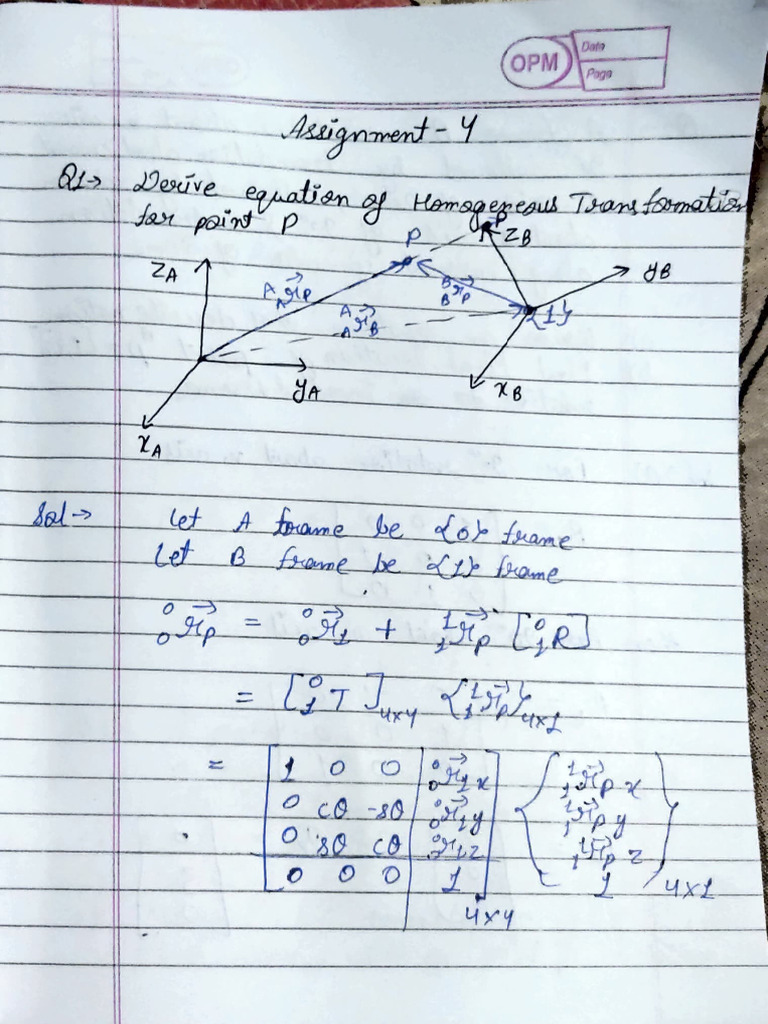 OPM
Date
Page
Assignment - 4
Q1→ Derive equation of Homogeneous Transformation
for point P
P
P
Z_B
Z_A
y_B
^A_A r⃗_P
^B_B r⃗_P
^A_A r⃗_B
{1}
y_A
x_B
x_A
Sol→ Let A frame be {0} frame
Let B frame be {1} frame
^0_0 r⃗_P = ^0_0 r⃗_1 + ^1_1 r⃗_P [^0_1 R]
= [^0_1 T]_4×4 {^1_1 r⃗_P}_4×1
= [ 1 0 0 | ^0_0 r⃗_1 x ] { ^1_1 r⃗_P x }
[ 0 cθ -sθ | ^0_0 r⃗_1 y ] { ^1_1 r⃗_P y }
[ 0 sθ cθ | ^0_0 r⃗_1 z ] { ^1_1 r⃗_P z }
[ 0 0 0 | 1 ]_4×4 { 1 }_4×1